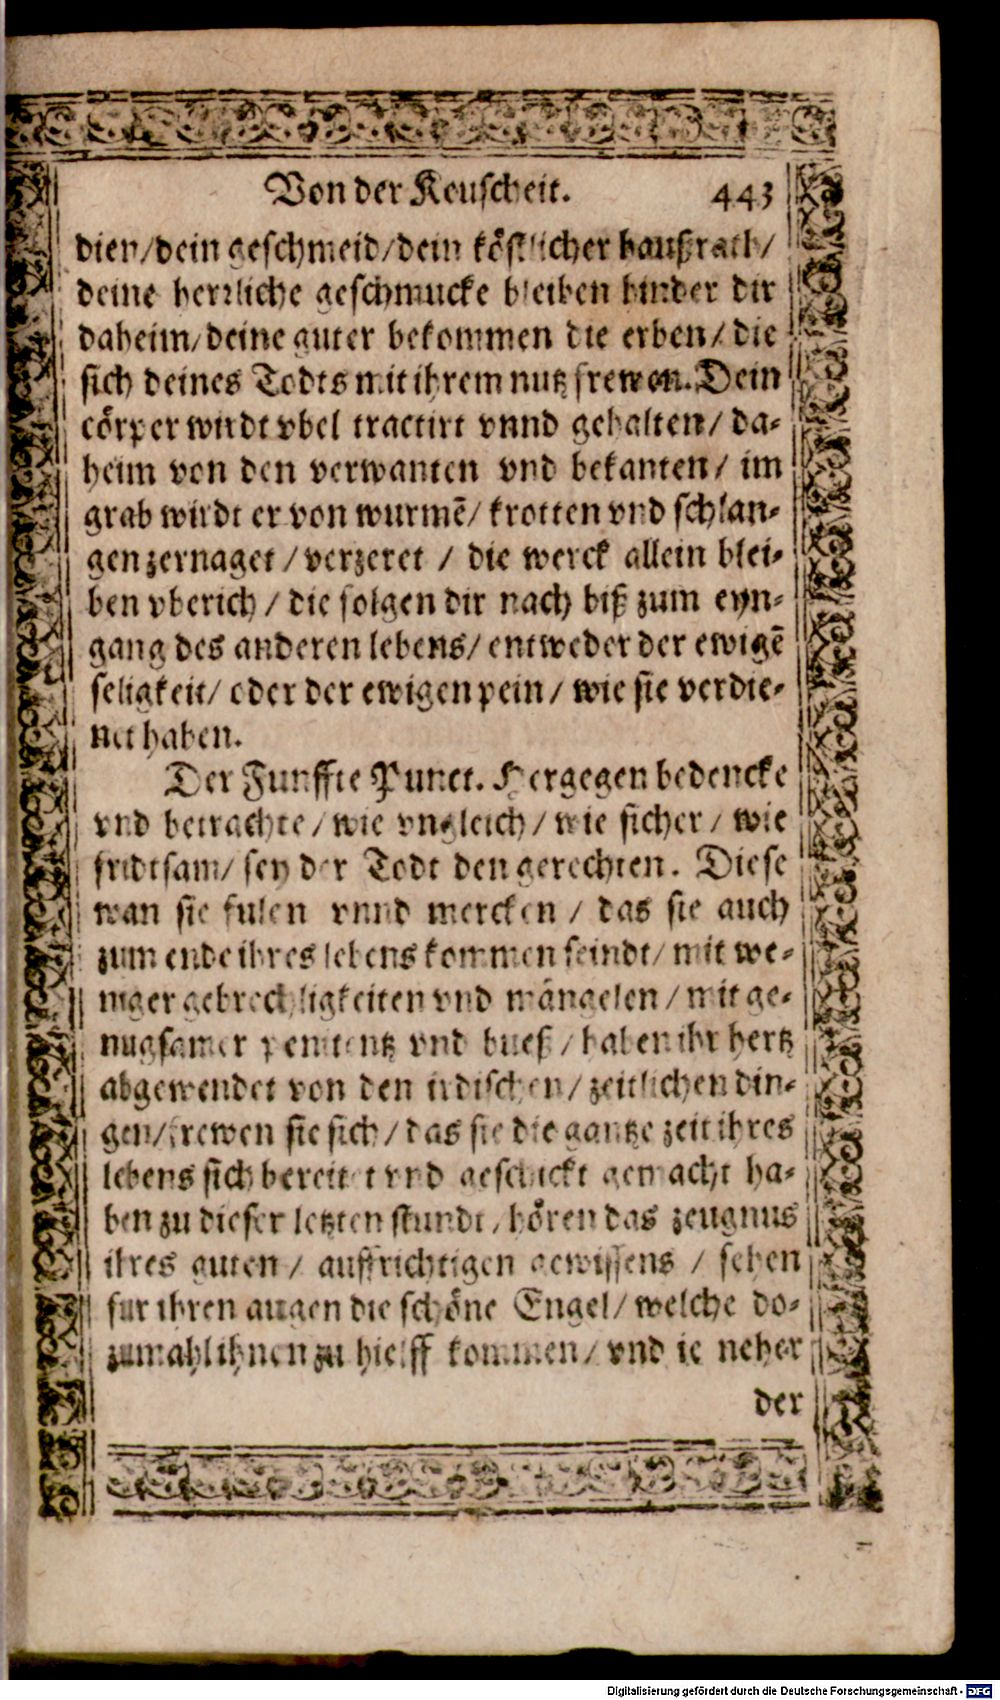 Von der Keuscheit. 443
dien/dein geschmeid/dein köstlicher haußrath/
deine herrliche geschmucke bleiben hinder dir
daheim/deine guter bekommen die erben/die
sich deines Todts mit ihrem nutz frewen. Dein
cörper wirdt vbel tractirt vnnd gehalten/ da-
heim von den verwanten vnd bekanten/ im
grab wirdt er von wurmē/ krotten vnd schlan-
gen zernaget / verzeret / die werck allein blei-
ben vberich / die folgen dir nach biß zum eyn-
gang des anderen lebens/ entweder der ewigē
seligkeit/ oder der ewigen pein/ wie sie verdie-
net haben.
Der Funffte Punct. Hergegen bedencke
vnd betrachte/wie vngleich/ wie sicher/ wie
fridtsam/ sey der Todt den gerechten. Diese
wan sie fulen vnnd mercken / das sie auch
zum ende ihres lebens kommen seindt/ mit we-
niger gebrechligkeiten vnd mängelen/ mit ge-
nugsamer penitentz vnd bueß / haben ihr hertz
abgewendet von den irdischen/ zeitlichen din-
gen/frewen sie sich/ das sie die gantze zeit ihres
lebens sich bereitet vnd geschickt gemacht ha-
ben zu dieser letzten stundt/ hören das zeugnus
ihres guten/ auffrichtigen gewissens / sehen
fur ihren augen die schöne Engel/ welche do-
zumahl ihnen zu hielff kommen/ vnd ie neher
der
Digitalisierung gefördert durch die Deutsche Forschungsgemeinschaft - DFG